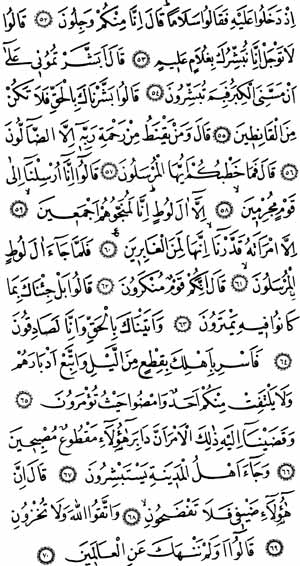 اِذْ دَخَلُوا عَلَيْهِ فَقَالُوا سَلَامًا قَالَ اِنَّا مِنْكُمْ وَجِلُونَ ﴿٥٢﴾ قَالُوا
لَا تَوْجَلْ اِنَّا نُبَشِّرُكَ بِغُلَامٍ عَلِيمٍ ﴿٥٣﴾ قَالَ اَبَشَّرْتُمُونِي عَلٰٓى
اَنْ مَسَّنِيَ الْكِبَرُ فَبِمَ تُبَشِّرُونَ ﴿٥٤﴾ قَالُوا بَشَّرْنَاكَ بِالْحَقِّ فَلَا تَكُنْ
مِنَ الْقَانِطِينَ ﴿٥٥﴾ قَالَ وَمَنْ يَقْنَطُ مِنْ رَحْمَةِ رَبِّهٖٓ اِلَّا الضَّٓالُّونَ
﴿٥٦﴾ قَالَ فَمَا خَطْبُكُمْ اَيُّهَا الْمُرْسَلُونَ ﴿٥٧﴾ قَالُوا اِنَّٓا اُرْسِلْنَٓا اِلٰى
قَوْمٍ مُجْرِمِينَ ﴿٥٨﴾ اِلَّٓا اٰلَ لُوطٍ اِنَّا لَمُنَجُّوهُمْ اَجْمَعِينَ ﴿٥٩﴾
اِلَّا امْرَاَتَهُ قَدَّرْنَٓا اِنَّهَا لَمِنَ الْغَابِرِينَ ﴿٦٠﴾ فَلَمَّا جَٓاءَ اٰلَ لُوطٍ
الْمُرْسَلُونَ ﴿٦١﴾ قَالَ اِنَّكُمْ قَوْمٌ مُنْكَرُونَ ﴿٦٢﴾ قَالُوا بَلْ جِئْنَاكَ بِمَا
كَانُوا فِيهِ يَمْتَرُونَ ﴿٦٣﴾ وَاَتَيْنَاكَ بِالْحَقِّ وَاِنَّا لَصَادِقُونَ
﴿٦٤﴾ فَاَسْرِ بِاَهْلِكَ بِقِطْعٍ مِنَ الَّيْلِ وَاتَّبِعْ اَدْبَارَهُمْ
وَلَا يَلْتَفِتْ مِنْكُمْ اَحَدٌ وَامْضُوا حَيْثُ تُؤْمَرُونَ ﴿٦٥﴾
وَقَضَيْنَٓا اِلَيْهِ ذٰلِكَ الْاَمْرَ اَنَّ دَابِرَ هٰٓؤُلَٓاءِ مَقْطُوعٌ مُصْبِحِينَ
﴿٦٦﴾ وَجَٓاءَ اَهْلُ الْمَدِينَةِ يَسْتَبْشِرُونَ ﴿٦٧﴾ قَالَ اِنَّ
هٰٓؤُلَٓاءِ ضَيْفِي فَلَا تَفْضَحُونِ ﴿٦٨﴾ وَاتَّقُوا اللّٰهَ وَلَا تُخْزُونِ
﴿٦٩﴾ قَالُٓوا اَوَلَمْ نَنْهَكَ عَنِ الْعَالَمِينَ ﴿٧٠﴾